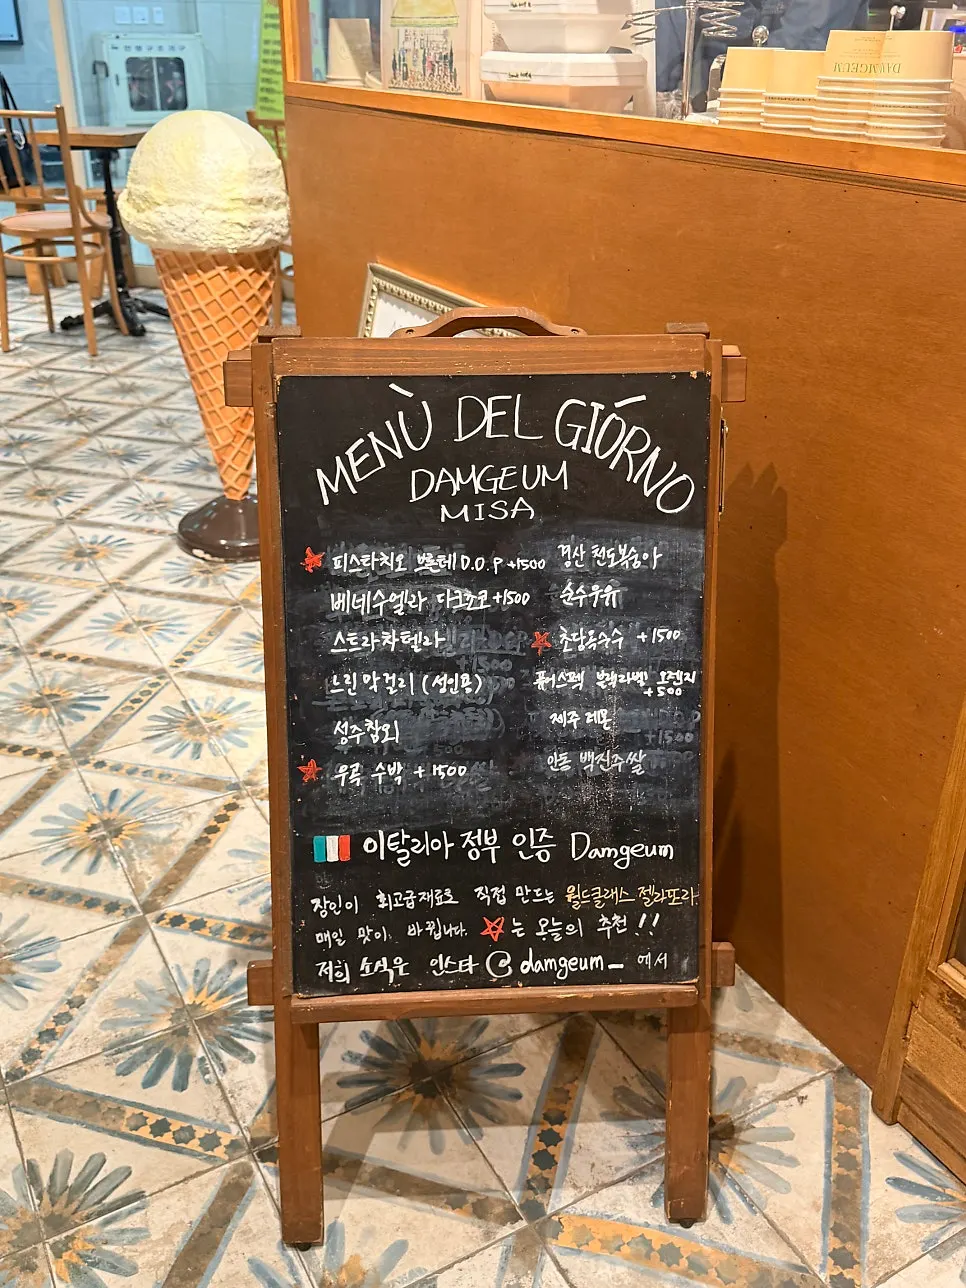 DAMGEUM
MENÙ DEL GIÓRNO
DAMGEUM
MISA
피스타치오 브론테 D.O.P +1500
베네수엘라 다크쵸코 +1500
스트라차텔라
느린 막걸리 (성인용)
성주참외
우곡 수박 + 1500
경산 천도복숭아
순수우유
초당옥수수 +1500
퓨어스펙 블랙라벨 오렌지
+500
제주 레몬
안동 백진주쌀
이탈리아 정부 인증 Damgeum
장인이 최고급재료로 직접 만드는 월드클래스 젤라또라
매일 맛이 바뀝니다. ☆는 오늘의 추천!!
저희 소식은 인스타 @damgeum_ 에서